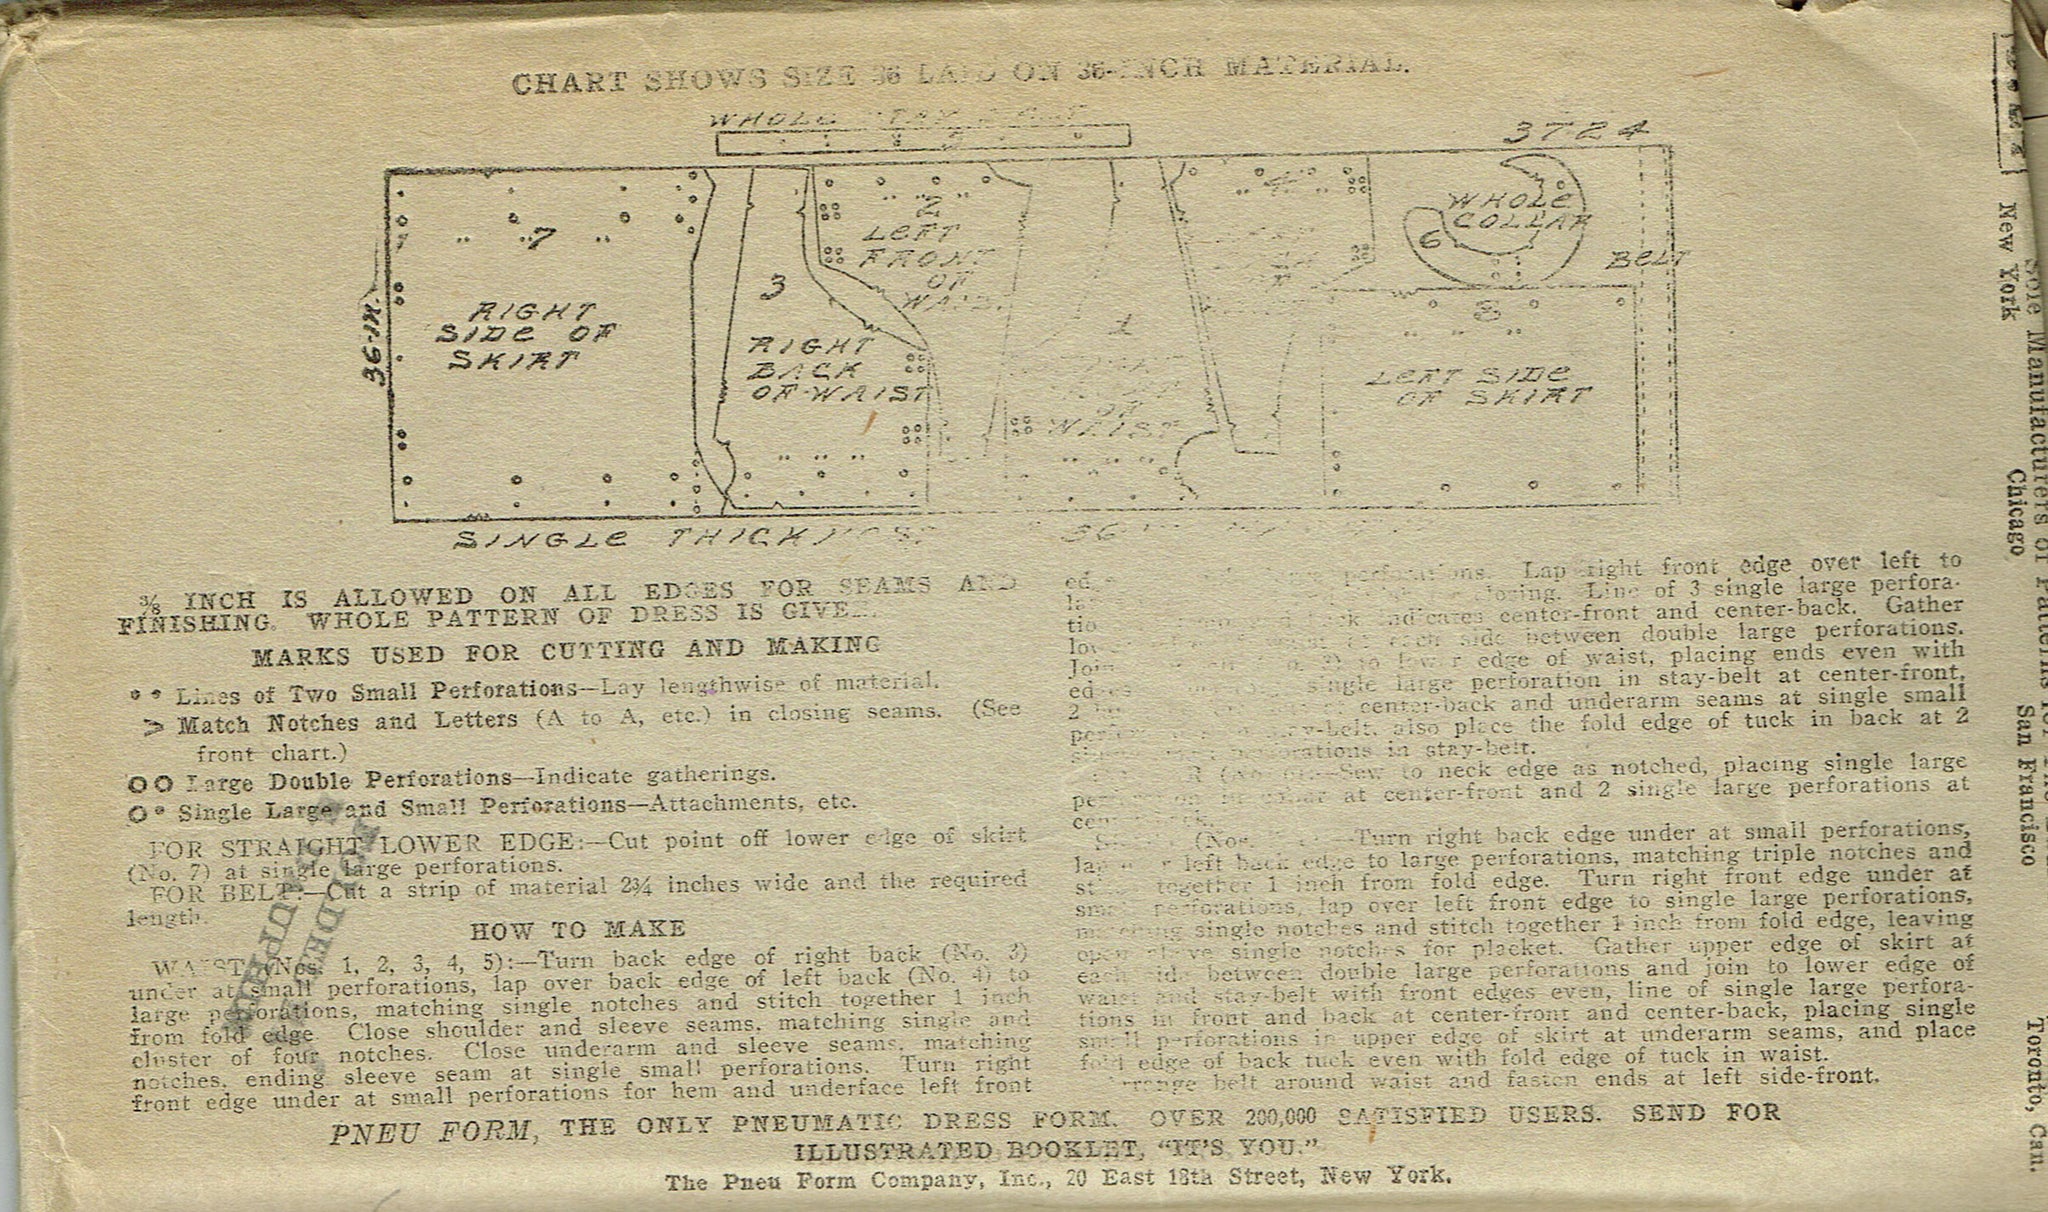 CHART SHOWS SIZE 36 LAID ON 36-INCH MATERIAL.
WHOLE
5
3724
36-IN.
7
RIGHT
SIDE OF
SKIRT
3
RIGHT
BACK
OF WAIST
2
LEFT
FRONT
OF
1
OF
WAIST
4
WHOLE
COLLAR
6
BELT
8
LEFT SIDE
OF SKIRT
SINGLE THICKNESS
⅜ INCH IS ALLOWED ON ALL EDGES FOR SEAMS AND
FINISHING. WHOLE PATTERN OF DRESS IS GIVEN.
MARKS USED FOR CUTTING AND MAKING
Lines of Two Small Perforations—Lay lengthwise of material.
> Match Notches and Letters (A to A, etc.) in closing seams. (See
front chart.)
Large Double Perforations—Indicate gatherings.
Single Large and Small Perforations—Attachments, etc.
FOR STRAIGHT LOWER EDGE:—Cut point off lower edge of skirt
(No. 7) at single large perforations.
FOR BELT:—Cut a strip of material 2¾ inches wide and the required
length.
HOW TO MAKE
WAIST (Nos. 1, 2, 3, 4, 5):—Turn back edge of right back (No. 3)
under at small perforations, lap over back edge of left back (No. 4) to
large perforations, matching single notches and stitch together 1 inch
from fold edge. Close shoulder and sleeve seams, matching single and
cluster of four notches. Close underarm and sleeve seams, matching
notches, ending sleeve seam at single small perforations. Turn right
front edge under at small perforations for hem and underface left front
perforations. Lap right front edge over left to
closing. Line of 3 single large perfora-
indicates center-front and center-back. Gather
each side between double large perforations.
Join to lower edge of waist, placing ends even with
single large perforation in stay-belt at center-front,
2 center-back and underarm seams at single small
stay-belt, also place the fold edge of tuck in back at 2
perforations in stay-belt.
Sew to neck edge as notched, placing single large
at center-front and 2 single large perforations at
(Nos. Turn right back edge under at small perforations,
lap over left back edge to large perforations, matching triple notches and
stitch together 1 inch from fold edge. Turn right front edge under at
small perforations, lap over left front edge to single large perforations,
matching single notches and stitch together 1 inch from fold edge, leaving
open above single notches for placket. Gather upper edge of skirt at
each side between double large perforations and join to lower edge of
waist and stay-belt with front edges even, line of single large perfora-
tions in front and back at center-front and center-back, placing single
small perforations in upper edge of skirt at underarm seams, and place
fold edge of back tuck even with fold edge of tuck in waist.
Arrange belt around waist and fasten ends at left side-front.
PNEU FORM, THE ONLY PNEUMATIC DRESS FORM. OVER 200,000 SATISFIED USERS. SEND FOR
ILLUSTRATED BOOKLET, "IT'S YOU."
The Pneu Form Company, Inc., 20 East 18th Street, New York.
Sole Manufacturers of Patterns
New York Chicago San Francisco Toronto, Can.